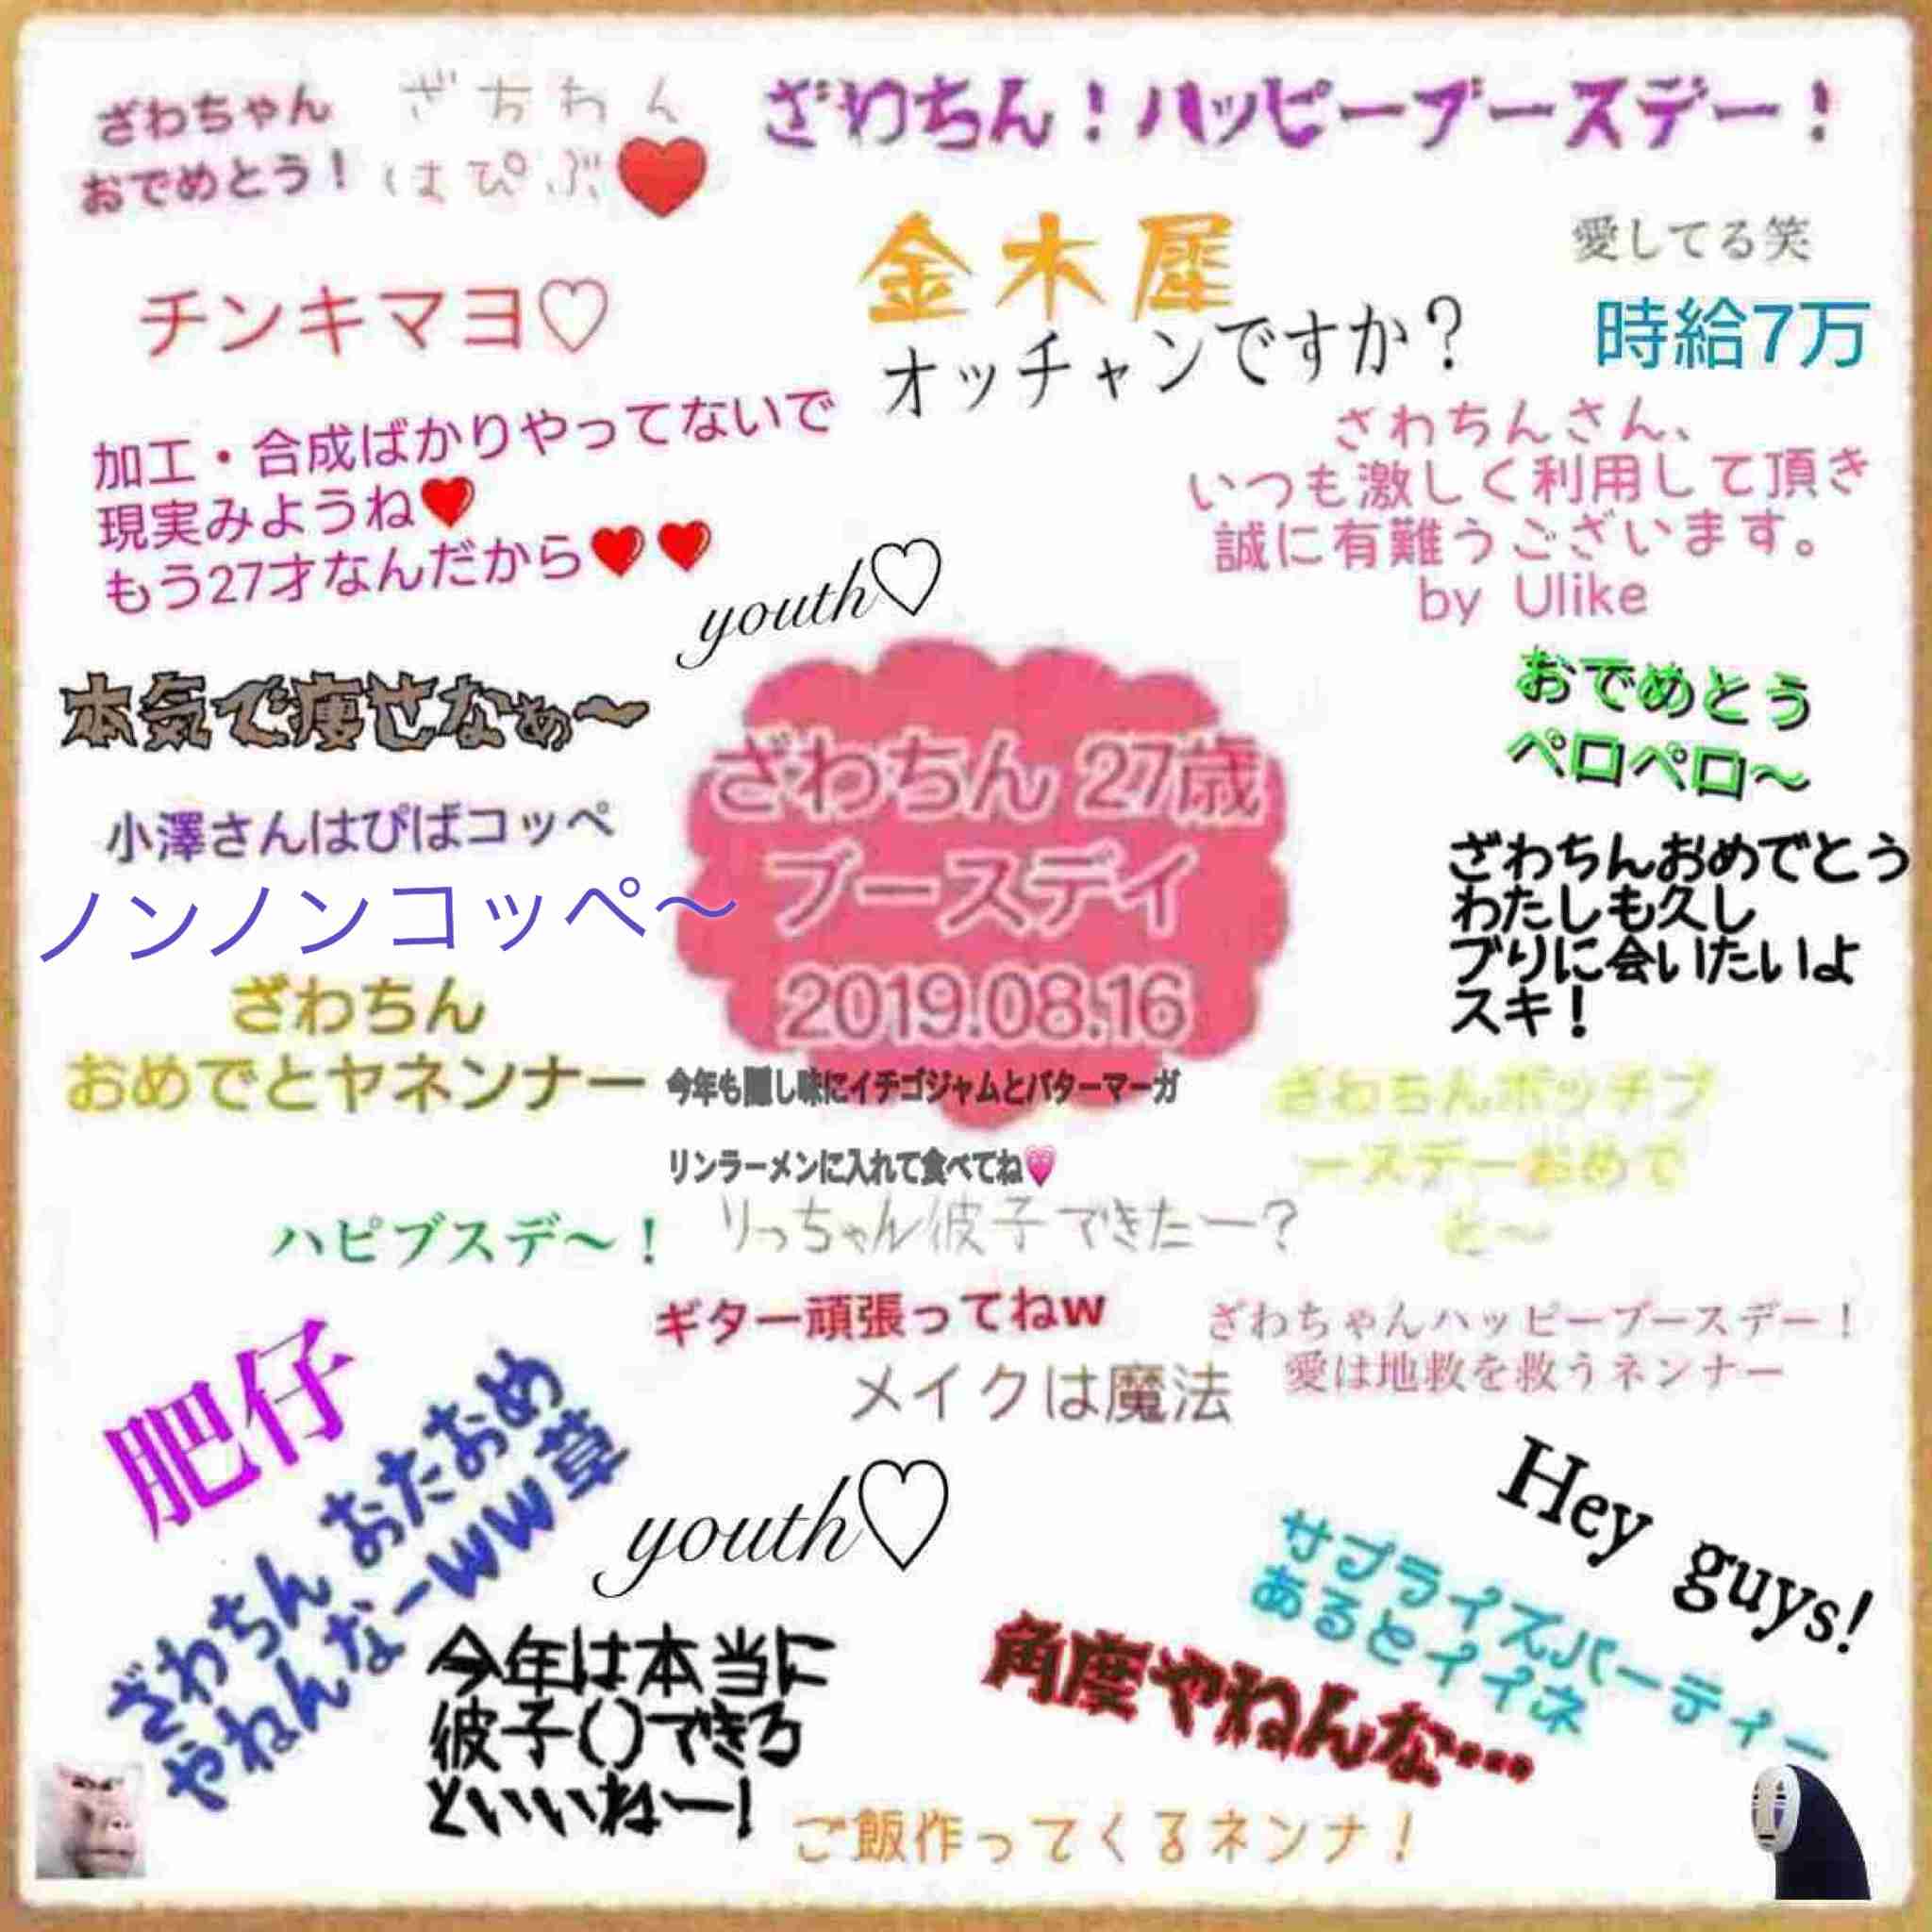 ざわちゃん
おでめとう！
ざちわん
はぴぶ❤
ざわちん！ハッピーブースデー！
金木犀
オッチャンですか？
愛してる笑
時給7万
チンキマヨ♡
加工・合成ばかりやってないで
現実みようね❤
もう27才なんだから❤❤
ざわちんさん、
いつも激しく利用して頂き
誠に有難うございます。
by Ulike
youth♡
本気で痩せなぁ〜
おでめとう
ペロペロ〜
ざわちん 27歳
ブースデイ
2019.08.16
小澤さんはぴばコッペ
ノンノンコッペ〜
ざわちんおめでとう
わたしも久し
ブりに会いたいよ
スキ！
ざわちん
おめでとヤネンナー
今年も隠し味にイチゴジャムとバターマーガ
リンラーメンに入れて食べてね💗
ざわちんボッチブ
ースデーおめで
と〜
ハピブスデ〜！
りっちゃん彼子できたー？
ギター頑張ってねw
ざわちゃんハッピーブースデー！
愛は地救を救うネンナー
メイクは魔法
肥仔
ざわちん おたおめ
やねんなーww草
youth♡
Hey guys!
サプライズパーティー
あるとイイネ
角度やねんな…
今年は本当に
彼子()できろ
といいねー！
ご飯作ってくるネンナ！